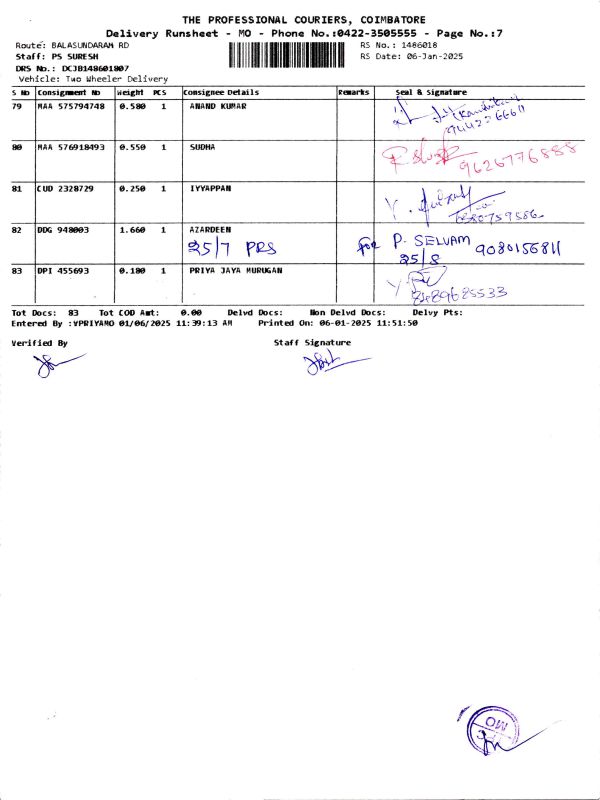 THE PROFESSIONAL COURIERS, COIMBATORE
Delivery Runsheet - MO - Phone No.:0422-3505555 - Page No.:7
Route: BALASUNDARAM RD RS No.: 1486018
Staff: PS SURESH RS Date: 06-Jan-2025
DRS No.: DCJB148601807
Vehicle: Two Wheeler Delivery
S No Consignment No Weight PCS Consignee Details Remarks Seal & Signature
79 MAA 575794748 0.580 1 ANAND KUMAR
9442266611
80 MAA 576918493 0.550 1 SUDHA
9626776888
81 CUD 2328729 0.250 1 IYYAPPAN
82 DDG 948003 1.660 1 AZARDEEN
25/7 PRS for P. SELVAM 9080156811
25/8
83 DPI 455693 0.180 1 PRIYA JAYA MURUGAN
8489685533
Tot Docs: 83 Tot COD Amt: 0.00 Delvd Docs: Non Delvd Docs: Delvy Pts:
Entered By :VPRIYAMO 01/06/2025 11:39:13 AM Printed On: 06-01-2025 11:51:50
Verified By Staff Signature
MO